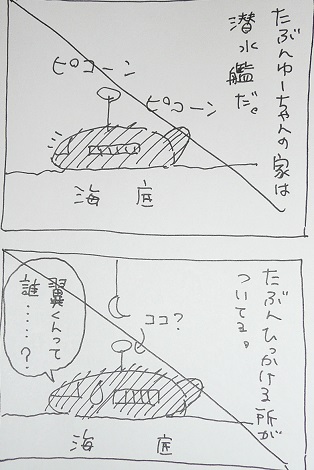 たぶんゆーちゃんの家は
潜水艦だ。
ピコーン
ピコーン
海底
たぶんひっかける所が
ついてる。
ココ?
翼くんって
誰……?
海底